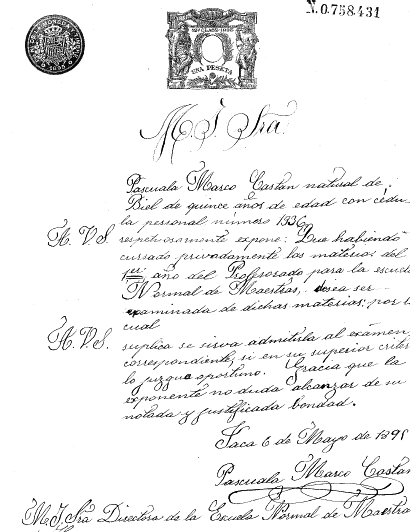 N.0.758.431
UNA PESETA
M. I. Sra.
Pascuala Marco Castan natural de
Biel de quince años de edad con cédu-
la personal número 1336,
A. V. S. respetuosamente expone: Que habiendo
cursado privadamente las materias del
1er año del Profesorado para la escuela
Normal de Maestras, desea ser
examinada de dichas materias; por lo
cual
A. V. S. suplica se sirva admitirla al exámen
correspondiente, si en su superior criterio
lo juzgua oportuno. Gracia que la
exponente no duda alcanzar de su
notada y justificada bondad.
Jaca 6 de Mayo de 189
Pascuala Marco Castan
M. I. Sra Directora de la Escuela Normal de Maestras